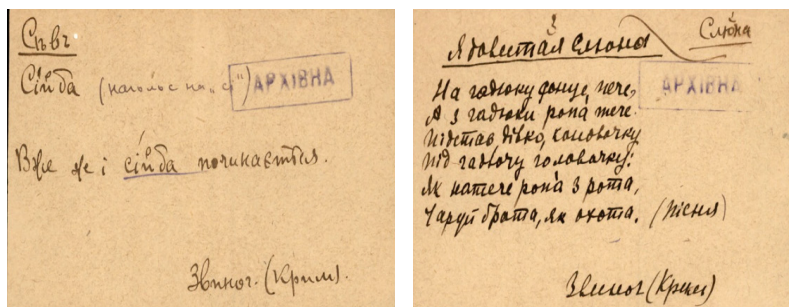 Сѣвъ
Сі́йба (наголос на „сі")
АРХІВНА
Вже ж і сі́йба починається.
Звиног. (Крим).
Ядовитая слюна
Слюна
АРХІВНА
На гадюку сонце пече,
А з гадюки ропа тече.
Підстав, дівко, коновочку
Під гадючу головочку:
Як натече ропа з рота,
Чаруй брата, як охота. (Пісня)
Звиног (Крим)